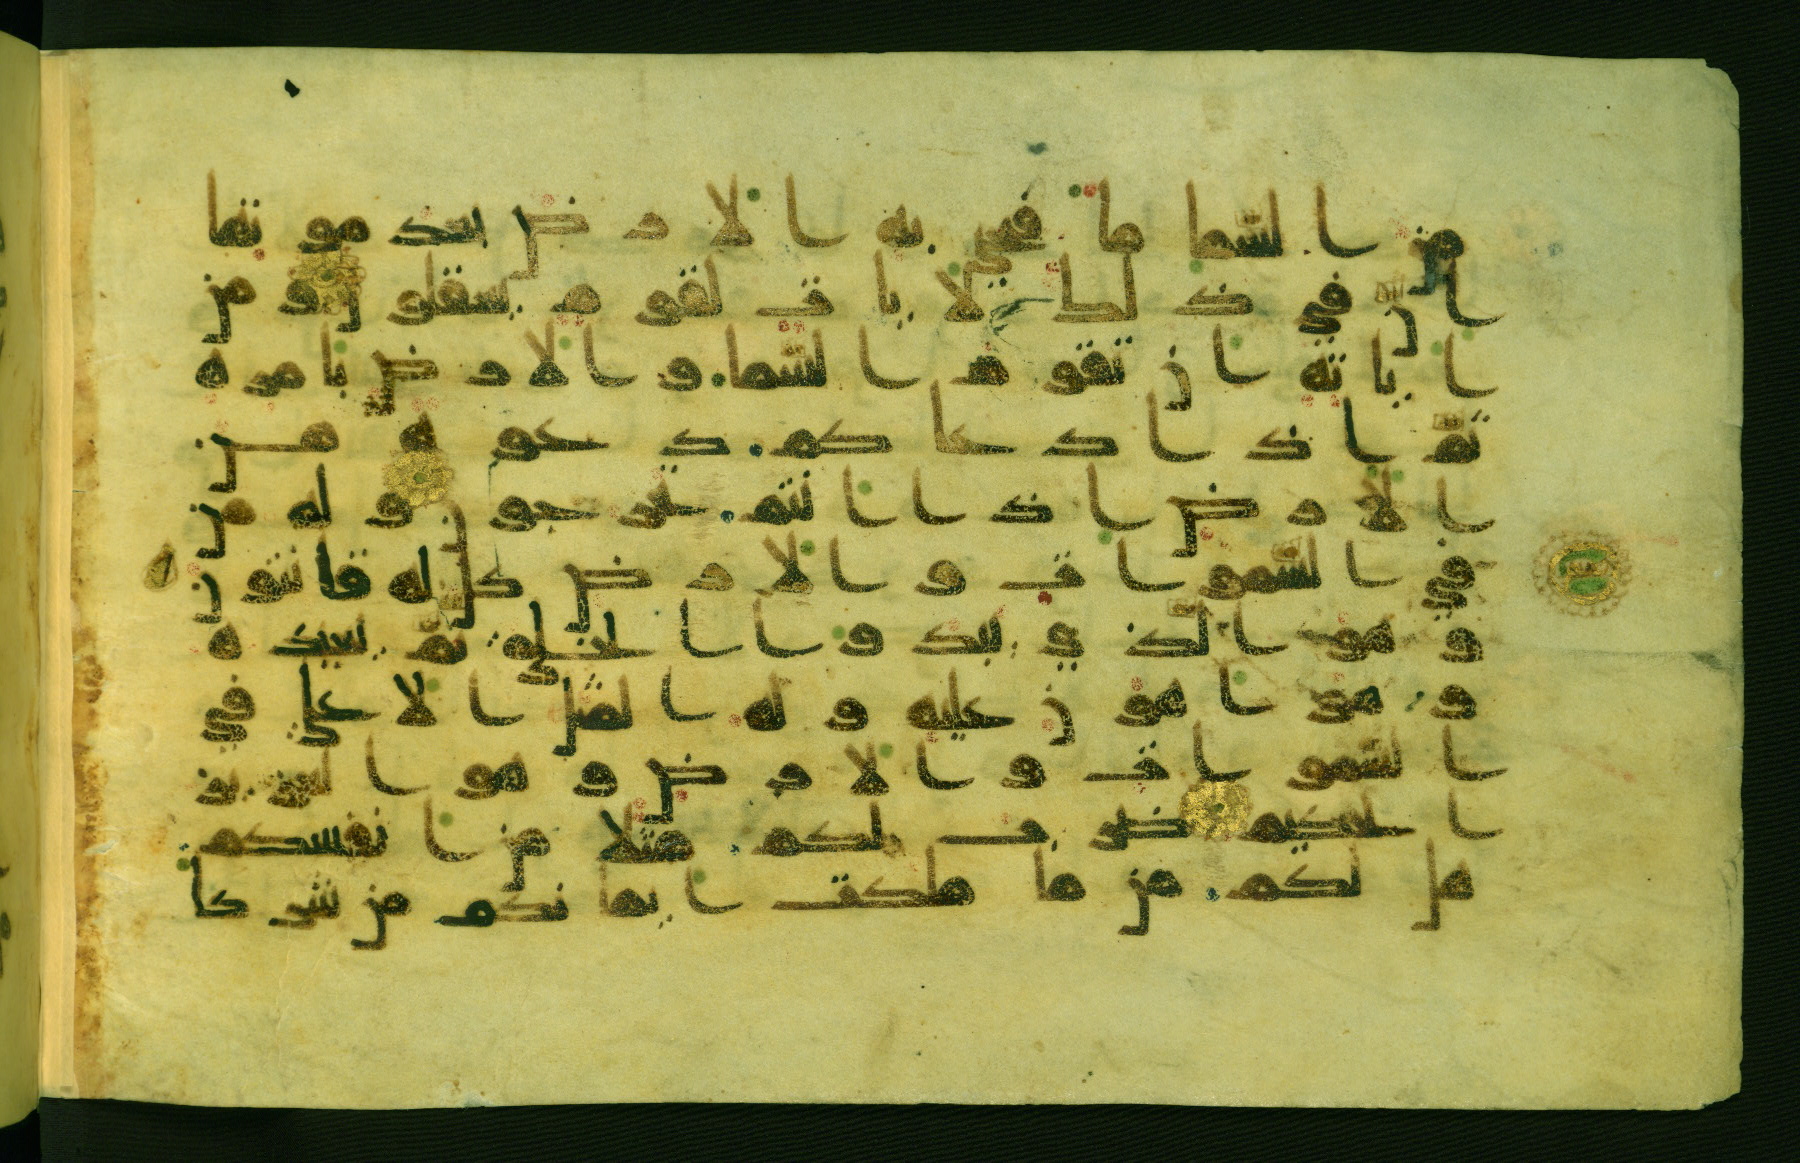 من السما ما فيحي به الارض بعد موتها
ان في ذلك لايات لقوم يعقلون ومن
اياته ان تقوم السما والارض بامره
ثم اذا دعاكم دعوة من
الارض اذا انتم تخرجون وله من
في السموات والارض كل له قانتون
وهو الذي يبدوا الخلق ثم يعيده
وهو اهون عليه وله المثل الاعلى في
السموات والارض وهو العزيز
الحكيم ضرب لكم مثلا من انفسكم
هل لكم من ما ملكت ايمانكم من شركا